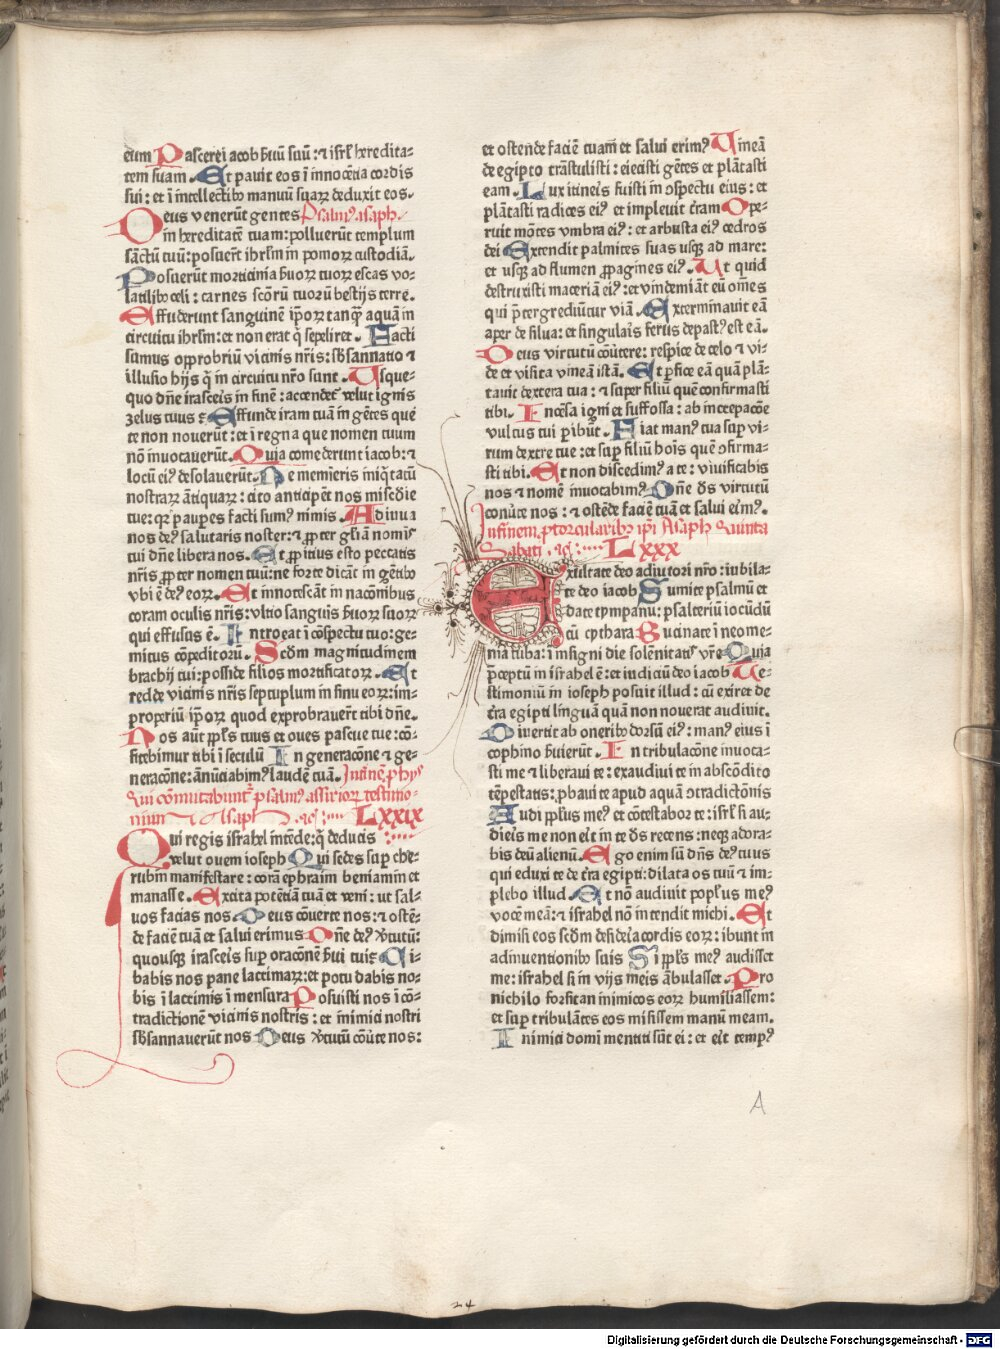 eum Pascere iacob ſeruū ſuū: ⁊ iſrl̄ heredita-
tem ſuam. Et pauit eos ī innocētia cordis
ſui: et ī intellectibꝰ manuū ſuaꝝ deduxit eos.
Deus venerūt gentes Pſalmꝰ aſaph.
in hereditatē tuam: polluerūt templum
ſāctū tuū: poſuerūt ihrl̄m in pomoꝝ cuſtodiā.
Poſuerūt morticinia ſ̄uoꝝ tuoꝝ eſcas vo-
latilibꝰ celi: carnes ſcōrū tuorū beſtijs terre.
Effuderunt ſanguinē ip̄oꝝ tanqȝ aquā in
circuitu ihrl̄m: et non erat q̄ ſepeliret. Facti
ſumus opprobriū vicinis nr̄is: ſb̄ſannatio ⁊
illuſio hijs q̄ in circuitu nr̄o ſunt. Uſque-
quo dn̄e iraſceris in finē: accendet᷑ velut ignis
zelus tuus: Effunde iram tuā in gētes que
te non nouerūt: et ī regna que nomen tuum
nō inuocauerūt. Quia comederunt iacob: ⁊
locū eiꝰ deſolauerūt. Ne memineris iniq̄tatū
noſtraꝝ ātiquaꝝ: cito anticipēt nos miſcd̄ie
tue: qꝛ pauperes facti ſumꝰ nimis. Adiuua
nos deꝰ ſalutaris noſter: ⁊ ꝓpter gl̄iā nomīs
tui dn̄e libera nos. Et ꝓpitius eſto peccatis
nr̄is ꝓpter nomen tuū: ne forte dicāt in gētibꝰ
vbi ē deꝰ eoꝝ. Et innoteſcāt in nacōnibus
coram oculis nr̄is: vltio ſanguīs ſ̄uoꝝ tuoꝝ
qui effuſus ē. Introeat ī cōſpectu tuo: ge-
mitus cōpeditorū. Scd̄m magnitudinem
brachij tui: poſſide filios mortificatoꝝ. Et
redde vicinis nr̄is ſeptuplum in ſinu eoꝝ: im-
properiū ip̄oꝝ quod exprobrauer̄t tibi dn̄e.
Nos aūt ppl̄s tuus et oues paſcue tue: cō-
fitebimur tibi ī ſeculū In generacōne ⁊ ge-
neracōne: ānūciabimꝰ laudē tuā. In finē p̄ hijs
qui cōmutabunt᷑ pſalmꝰ aſſirioꝝ teſtimo-
nium Aſaph LXXIX
Qui regis iſrahel intēde: q̄ deducis
velut ouem ioſeph Qui ſedes ſuꝑ che-
rubin manifeſtare: corā ephraim beniamin et
manaſſe. Excita potētiā tuā et veni: ut ſal-
uos facias nos. Deus cōuerte nos: ⁊ oſtē-
de faciē tuā et ſalui erimus Dn̄e deꝰ v̓tutū:
quouſqȝ iraſceris ſuꝑ oracōnē ſ̄ui tui: Ci-
babis nos pane lacrimaꝝ: et potū dabis no-
bis ī lacrimis ī menſura Poſuiſti nos ī cō-
tradictionē vicinis noſtris: et inimici noſtri
ſb̄ſannauerūt nos Deus v̓tutū cōuerte nos:
et oſtende faciē tuam̄ et ſalui erimꝰ Uineā
de egipto trāſtuliſti: eieciſti gētes et plātaſti
eam. Dux itineris fuiſti in ꝯſpectu eius: et
plātaſti radices eiꝰ et impleuit t̓ram Ope-
ruit mōtes vmbra eiꝰ: et arbuſta eiꝰ cedros
dei Extendit palmites ſuas uſqȝ ad mare:
et uſqȝ ad flumen ꝓpagines eiꝰ. Ut quid
deſtruxiſti maceriā eiꝰ: et vindemiāt eū om̄es
qui p̄tergrediūtur viā. Exterminauit eā
aper de ſilua: et ſingularis ferus depaſtꝰ eſt eā.
Deus virtutū cōuertere: reſpice de celo ⁊ vi-
de et viſita vineā iſtā. Et ꝑfice eā quā plā-
tauit dextera tua: ⁊ ſuper filiū quē confirmaſti
tibi. Incēſa igni et ſuffoſſa: ab increpacōe
vultus tui ꝑibūt. Fiat manꝰ tua ſuꝑ vi-
rum dextre tue: et ſuꝑ filiū hoīs quē ꝯfirma-
ſti tibi. Et non diſcedimꝰ a te: viuificabis
nos ⁊ nomē inuocabimꝰ Dn̄e d̄s virtutū
conuerte nos: ⁊ oſtēde faciē tuā et ſalui erimꝰ.
In finem p̄ torcularibꝰ ip̄i Aſaph Quinta
Sabati LXXX
Exultate deo adiutori nr̄o: iubila-
te deo iacob Sumite pſalmū et
date tympanu: pſalteriū iocūdū
cū cythara Bucinate ī neome-
nia tuba: ī inſigni die ſolēnitatis vr̄e Quia
p̄ceptū in iſrahel ē: et iudiciū deo iacob Te-
ſtimoniū in ioſeph poſuit illud: cū exiret de
t̓ra egipti linguā quā non nouerat audiuit.
Diuertit ab oneribꝰ dorſū eiꝰ: manꝰ eius ī
cophino ſ̄uierūt. In tribulacōne inuoca-
ſti me ⁊ liberaui te: exaudiui te in abſcōdito
tēpeſtatis: ꝓbaui te apud aquā ꝯtradictōnis
Audi ppl̄us meꝰ et cōteſtaboꝝ te: iſrl̄ ſi au-
dieris me non erit in te d̄s recens: neqȝ adora-
bis deū alienū. Ego enim ſū dn̄s deꝰ tuus
qui eduxi te de t̓ra egipti: dilata os tuū ⁊ im-
plebo illud. Et nō audiuit popl̄us meꝰ
vocē meā: ⁊ iſrahel nō intendit michi. Et
dimiſi eos ſcd̄m deſideria cordis eoꝝ: ibunt in
adinuentionibꝰ ſuis Si ppl̄s meꝰ audiſſet
me: iſrahel ſi in vijs meis ābulaſſet. Pro
nichilo forſitan inimicos eoꝝ humiliaſſem:
et ſuꝑ tribulātes eos miſiſſem manū meam.
Inimici domī mentiti ſūt ei: et erit tempꝰ
A
24
Digitalisierung gefördert durch die Deutsche Forschungsgemeinschaft - DFG